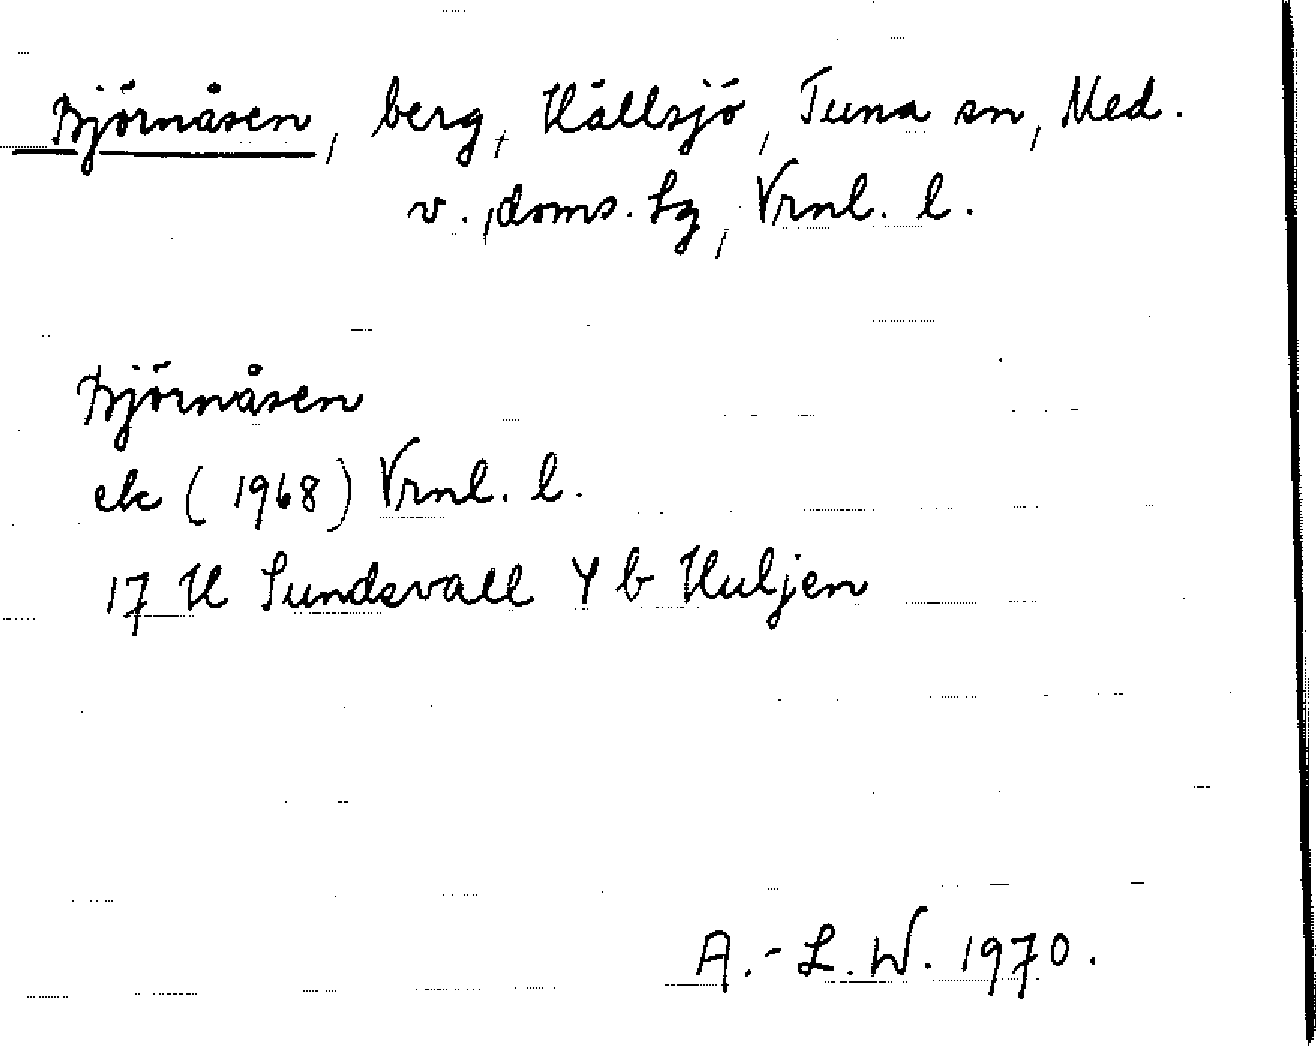 Björnåsen, berg, Hällsjö, Tuna sn, Med.
v., doms. Sg, Vrnl. l.
Björnåsen
ek (1968) Vrnl. l.
17 H Sundsvall Y b Huljen
A.-L. W. 1970.